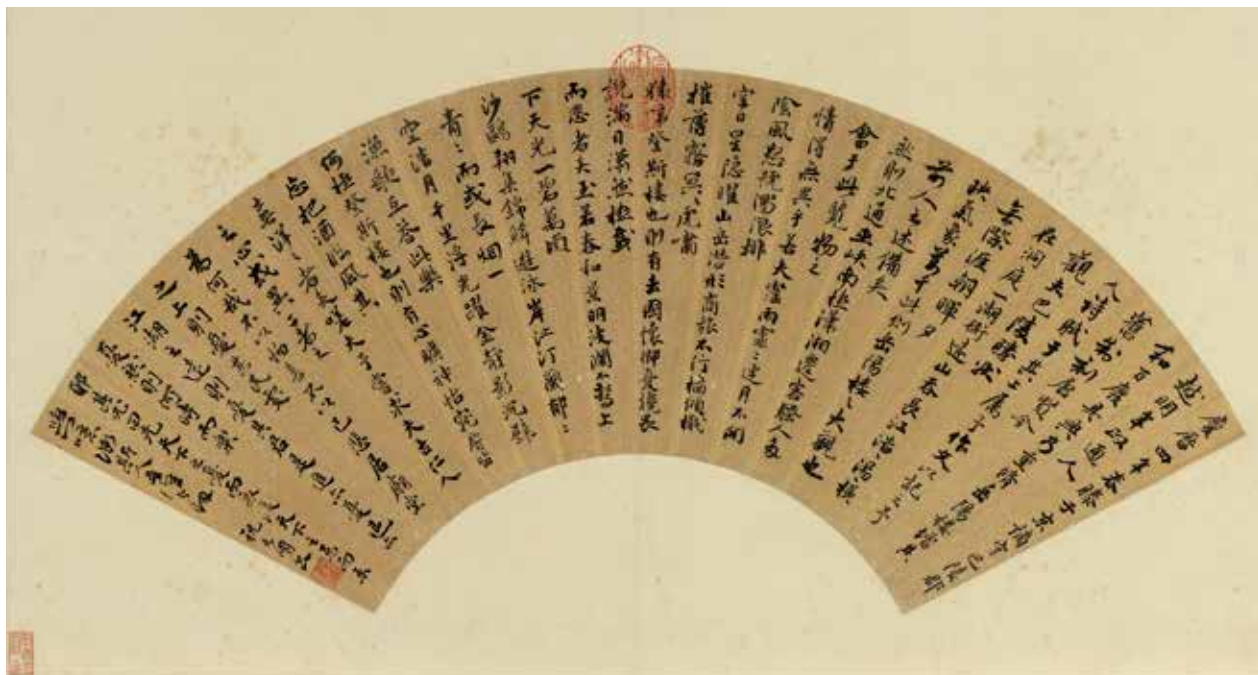 慶曆四年春滕子京謫守巴陵郡
越明年政通人
和百廢具興乃重脩岳陽樓增其
舊制刻唐賢今
人詩賦于其上屬予作文以記之予
觀夫巴陵勝狀
在洞庭一湖銜遠山吞長江浩湯橫
無際涯朝暉夕
氣象萬千此則岳陽樓之大觀也
前人之述備矣
然則北通巫峽南極瀟湘遷客騷人多
會于此覽物之
情得無異乎若夫霪雨霏々連月不開
陰風怒號濁浪排
空日星隱曜山岳潛形商旅不行檣傾楫
摧薄暮冥々虎嘯
猿啼登斯樓也則有去國懷鄉憂讒畏
譏滿目蕭然極
而悲者矣至若春和景明波瀾不驚上
下天光一碧萬頃
沙鷗翔集錦鱗游泳岸芷汀蘭郁々
青々而或長烟一
空皓月千里浮光躍金靜影沉璧
漁歌互答此樂
何極登斯樓也則有心曠神怡寵辱皆
忘把酒臨風其
喜洋々者矣嗟夫予嘗求夫古仁人
之心或異二者之
為何哉不以物喜不以己悲居廟堂
之上則憂其民處
江湖之遠則憂其君是進亦憂退亦
憂然則何時而樂
耶其先天下之憂而憂後天下之樂而樂
祝允明書